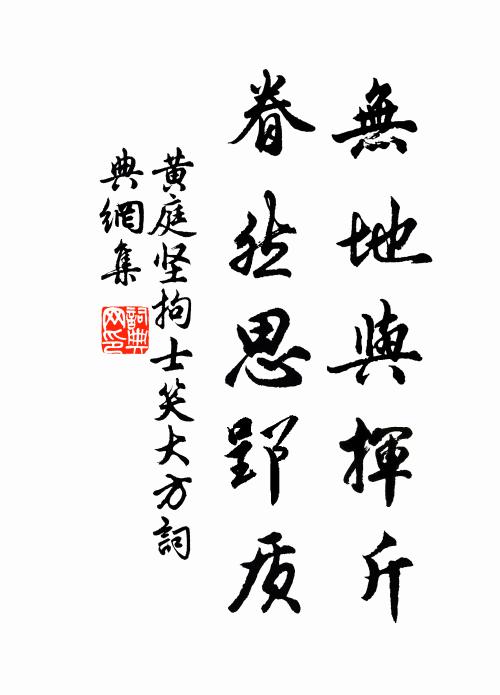 無地與揮斤
眷然思郢质
黄庭坚拘士笑大方詞
典網集
詞典网印